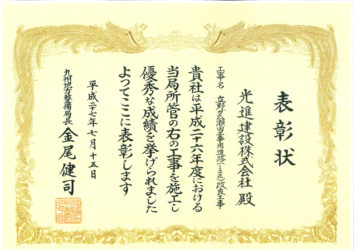 表彰状
光進建設株式会社 殿
工事名 立野ダム瀬田工事用進入路(上流)改良工事
貴社は平成二十六年度における
当局所管の右の工事を施工し
優秀な成績を挙げられました
よってここに表彰します
平成二十七年七月十五日
九州地方整備局長 金尾健司